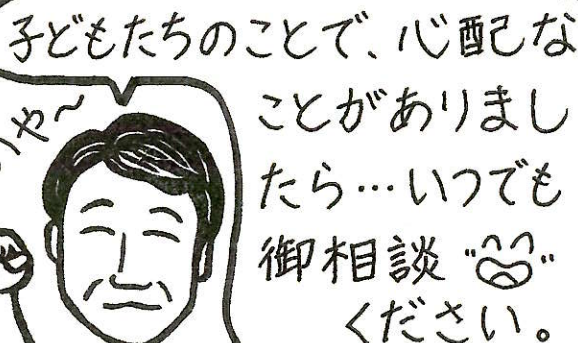 子どもたちのことで、心配な
ことがありまし
たら…いつでも
御相談
ください。